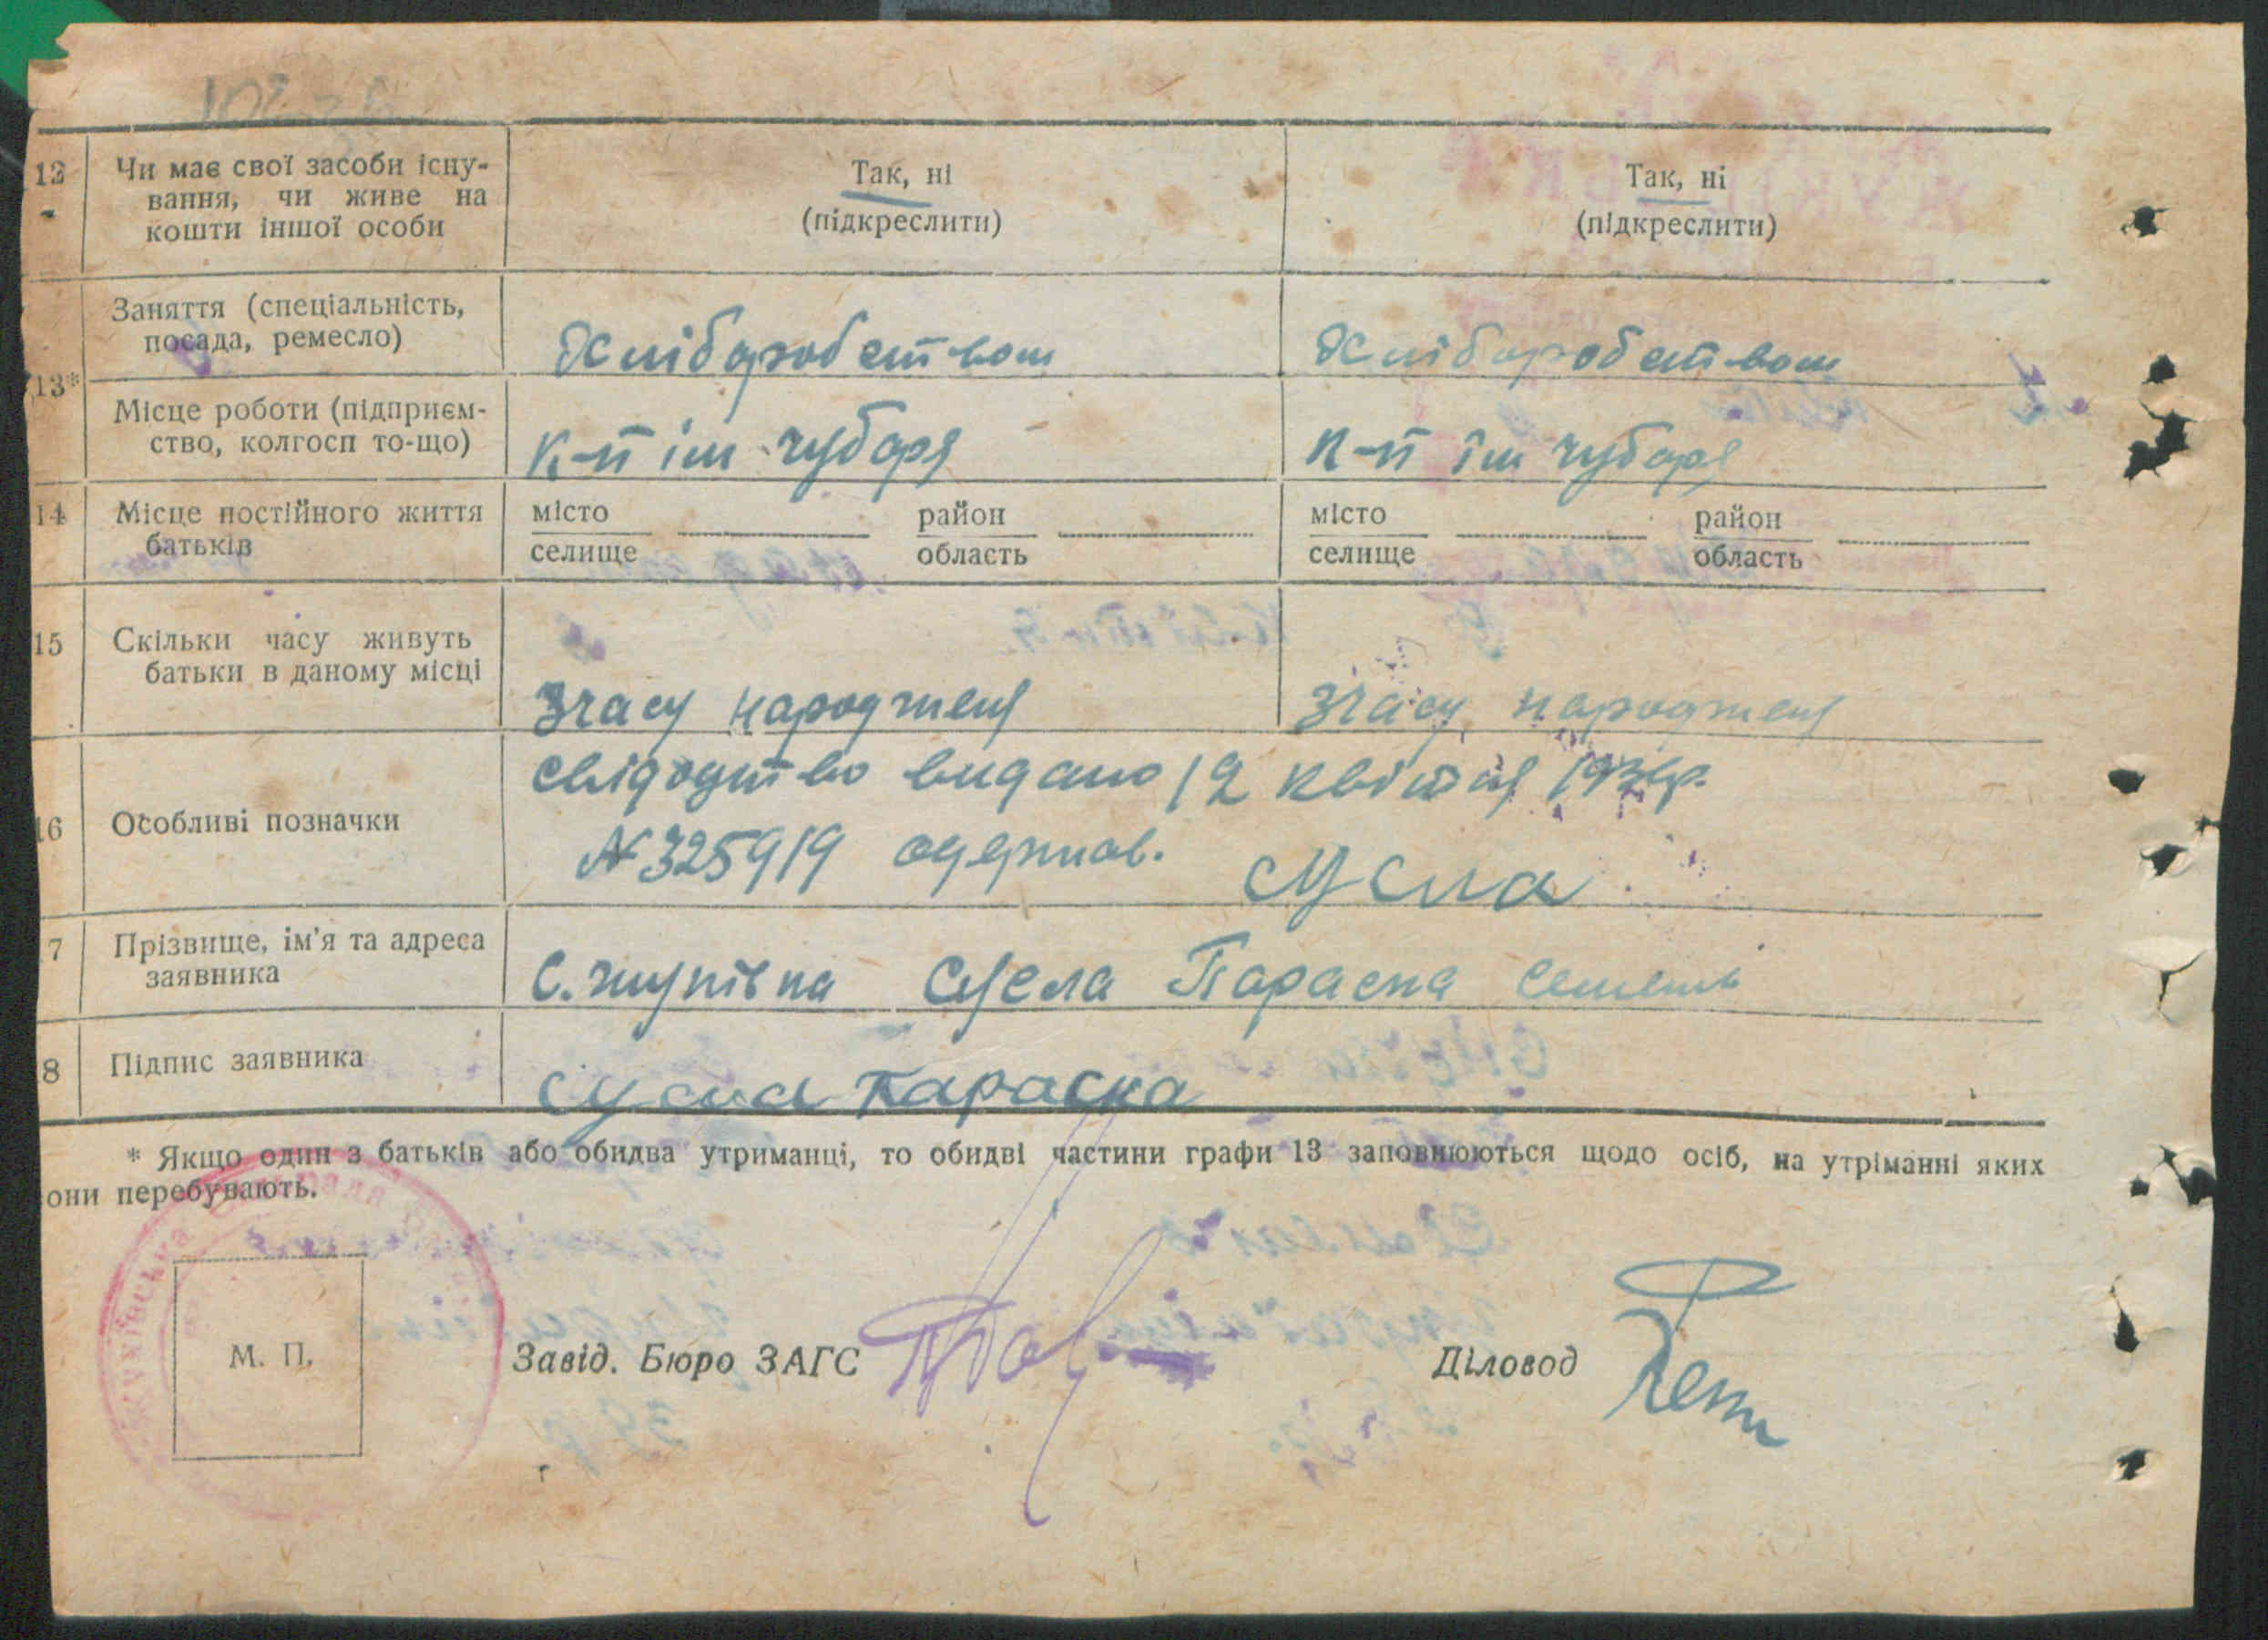 12 Чи має свої засоби існу-
вання, чи живе на
кошти іншої особи
Так, ні
(підкреслити)
Так, ні
(підкреслити)
13*
Заняття (спеціальність,
посада, ремесло)
Хліборобством
Хліборобством
Місце роботи (підприєм-
ство, колгосп то-що)
К-п ім чубаря
К-п ім чубаря
14 Місце постійного життя
батьків
місто
селище
район
область
місто
селище
район
область
15 Скільки часу живуть
батьки в даному місці
Зчасу народженя
Зчасу народженя
16 Особливі позначки
свідоцтво видано 12 квітня
№ 325919 одержав. Сусла
7 Прізвище, ім'я та адреса
заявника
С. жуківка Сусла Параска
8 Підпис заявника
Сусла Параска
* Якщо один з батьків або обидва утриманці, то обидві частини графи 13 заповнюються щодо осіб, на утріманні яких
они перебувають.
М. П.
Завід. Бюро ЗАГС
Діловод